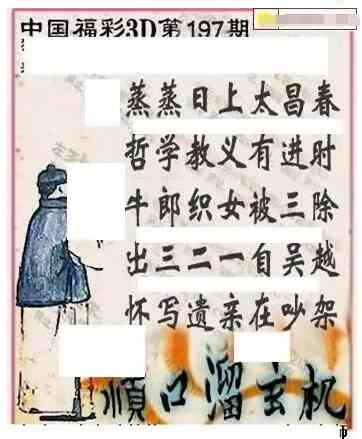 中国福彩3D第197期
蒸蒸日上太昌春
哲学教义有进时
牛郎织女被三除
出三二一自吴越
怀写遗亲在吵架
顺口溜玄机